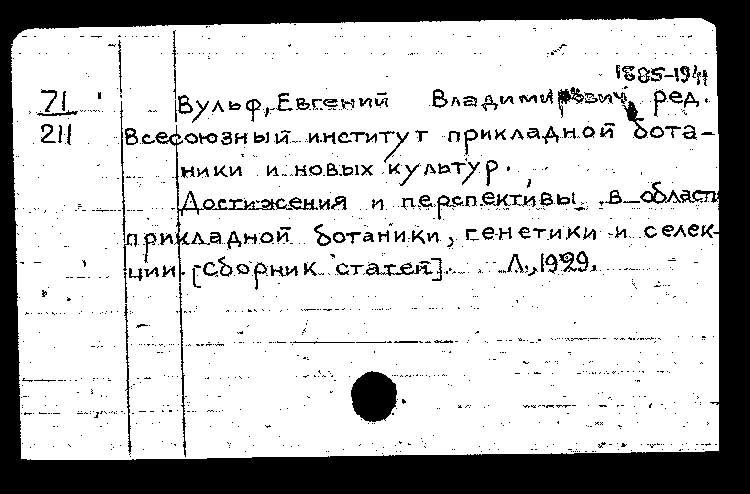 1885-1941
71 Вульф, Евгений Владимирович, ред.
211 Всесоюзный институт прикладной бота-
ники и новых культур.
Достижения и перспективы в области
прикладной ботаники, генетики и селек-
ции. [Сборник статей]. Л., 1929.